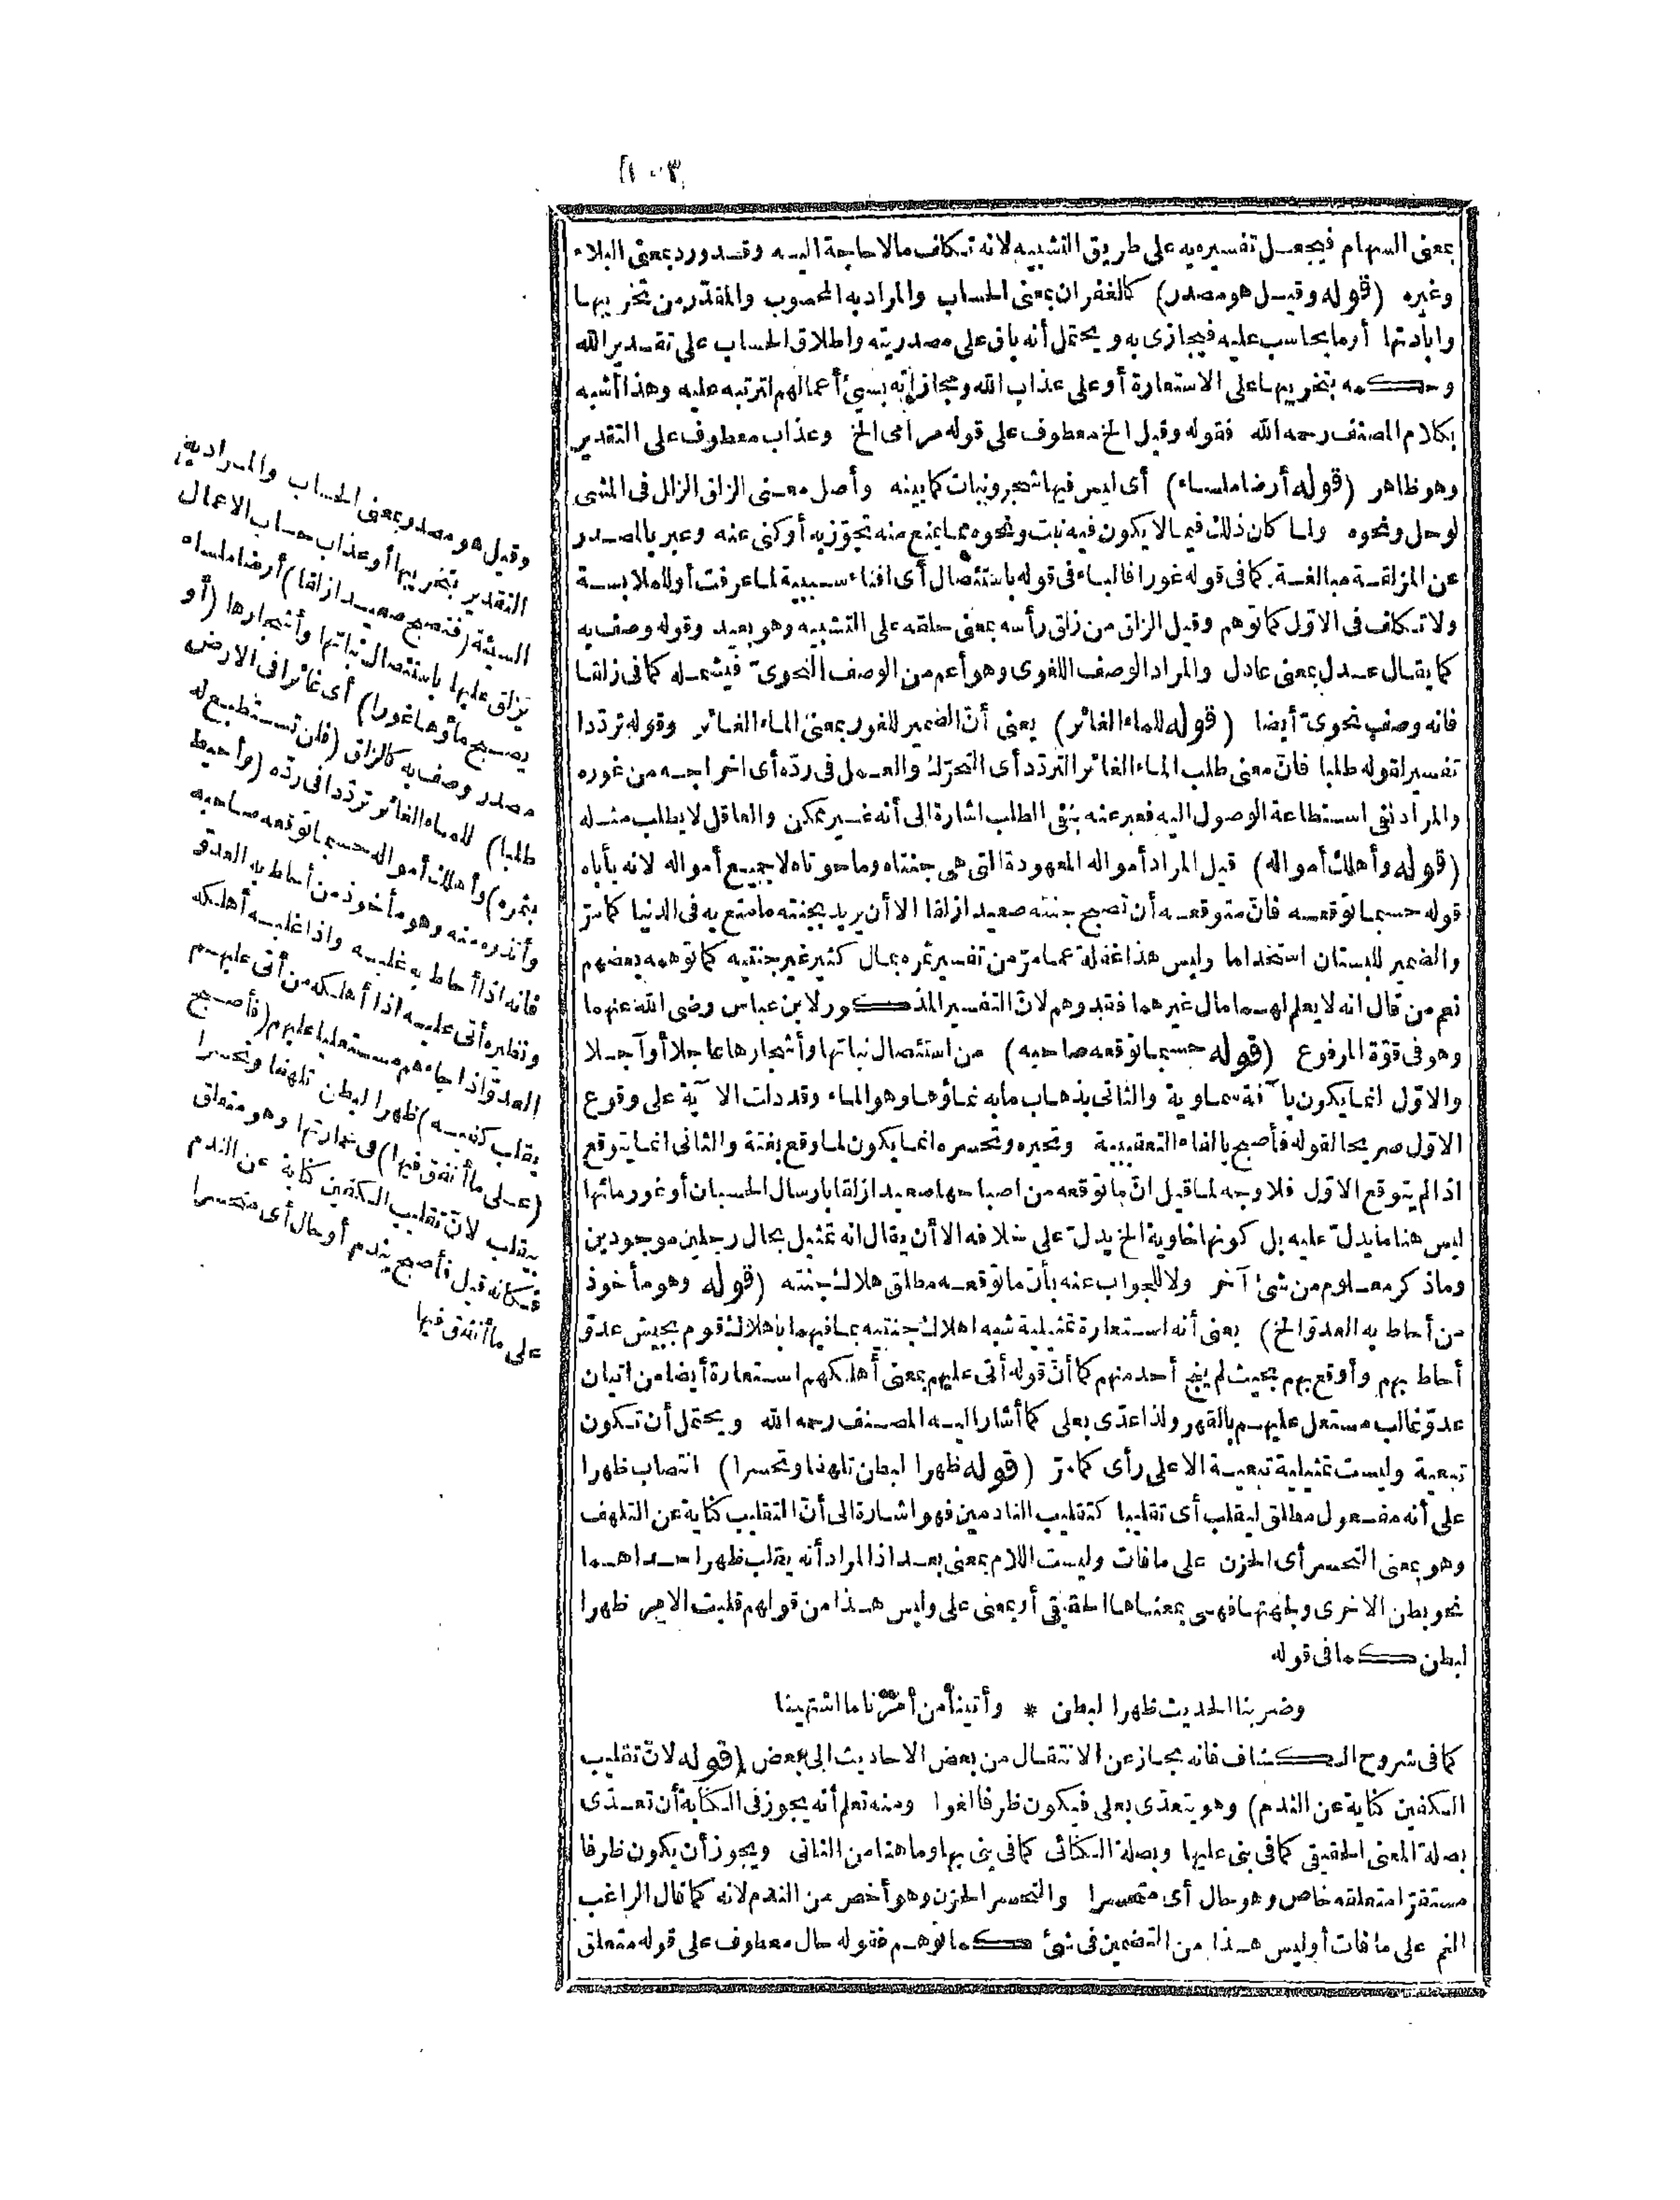 ١٠٣
بمعنى السهام فيجعل تفسيره به على طريق التشبيه لانه تكاف مالا حاجة اليه وقد ورد بمعنى البلاء
وغيره (قوله وقيل هو مصدر) كالغفران بمعنى الحساب والمراد به المحسوب والمقدّر من تخريبها
وابادتها أو ما يحاسب عليه فيجازى به ويحتمل أنه باق على مصدريته واطلاق الحساب على تقدير الله
وحكمه بتخريبها على الاستعارة أو على عذاب الله ومجازاته بسئ أعمالهم لترتبه عليه وهذا أشبه
بكلام المصنف رحمه الله فقوله وقيل الخ معطوف على قوله مرامى الخ وعذاب معطوف على التقدير
وهو ظاهر (قوله أرضا ملساء) أى ليس فيها شجر ونبات كما بينه وأصل معنى الزلق الزلل فى المشى
لوحل ونحوه ولما كان ذلك فيما لا يكون فيه نبت ونحوه مما يمنع منه تجوّز به أو كنى عنه وعبر بالمصدر
عن المزلقة مبالغة كما فى قوله غورا فالباء فى قوله باستئصال أى افناء سببية لما عرفت أو للملابسة
ولا تكلف فى الاوّل كما توهم وقيل الزلق من زلق رأسه بمعنى حلقه على التشبيه وهو بعيد وقوله وصف به
كما يقال عدل بمعنى عادل والمراد الوصف اللغوى وهو أعم من الوصف النحوىّ فيشمله كما فى زلقا
فانه وصف نحوىّ أيضا (قوله للماء الغائر) يعنى أنّ الضمير للغور بمعنى الماء الغائر وقوله تردّدا
تفسير لقوله طلبا فانّ معنى طلب الماء الغائر التردّد أى التحرّك والعمل فى ردّه أى اخراجه من غوره
والمراد نفى استطاعة الوصول اليه فعبر عنه بنفى الطلب اشارة الى أنه غير ممكن والعاقل لا يطلب مثله
(قوله وأهلك أمواله) قيل المراد أمواله المعهودة التى هى جنتاه وما حوتاه لا جميع أمواله لانه يأباه
قوله حسبما توقعه فانّ متوقعه أن تصبح جنته صعيدا زلقا الا أن يريد بجنته ما متع به فى الدنيا كما مرّ
والضمير للبستان استخداما وليس هذا غفلة عما مرّ من تفسير ثمره بمال كثير غير جنتيه كما توهمه بعضهم
نعم من قال انه لا يعلم لهما مال غيرهما فقد وهم لانّ التفسير المذكور لابن عباس رضى الله عنهما
وهو فى قوّة المرفوع (قوله حسبما توقعه صاحبه) من استئصال نباتها وأشجارها عاجلا أو آجلا
والاوّل انما يكون بآفة سماوية والثانى بذهاب ما به نماؤها وهو الماء وقد دلت الآية على وقوع
الاوّل صريحا لقوله فأصبح بالفاء التعقيبية وتحيره وتحسره انما يكون لما وقع بغتة والثانى انما يتوقع
اذا لم يتوقع الاوّل فلا وجه لما قيل انّ ما توقعه من اصباحها صعيدا زلقا بارسال الحسبان أو غور مائها
ليس هنا ما يدلّ عليه بل كونها خاوية الخ يدلّ على خلافه الا أن يقال انه تمثيل بحال رجلين موجودين
وما ذكر معلوم من شئ آخر ولا للجواب عنه بأنّ ما توقعه مطلق هلاك جنته (قوله وهو مأخوذ
من أحاط به العدوّ الخ) يعنى أنه استعارة تمثيلية شبه اهلاك جنتيه بما فيهما باهلاك قوم بجيش عدوّ
أحاط بهم وأوقع بهم بحيث لم ينج أحد منهم كما أنّ قوله أتى عليهم بمعنى أهلكهم استعارة أيضا من اتيان
عدوّ غالب مستعل عليهم بالقهر ولذا عدّى بعلى كما أشار اليه المصنف رحمه الله ويحتمل أن تكون
تبعية وليست تمثيلية تبعية الا على رأى كما مرّ (قوله ظهرا لبطن تلهفا وتحسرا) انتصاب ظهرا
على أنه مفعول مطلق ليقلب أى تقليبا كتقليب النادمين فهو اشارة الى أنّ التقليب كناية عن التلهف
وهو بمعنى التحسر أى الحزن على ما فات وليست اللام بمعنى بعد اذ المراد أنه يقلب ظهر احداهما
نحو بطن الاخرى ولجهتها فهى بمعناها الحقيقى أو بمعنى على وليس هذا من قولهم قلبت الامر ظهرا
لبطن كما فى قوله
وضربنا الحديث ظهرا لبطن * وأتينا من أمرنا ما اشتهينا
كما فى شروح الكشاف فانه مجاز عن الانتقال من بعض الاحاديث الى بعض (قوله لانّ تقليب
الكفين كناية عن الندم) وهو يتعدّى بعلى فيكون ظرفا لغوا ومنه تعلم أنه يجوز فى الكناية أن تعدّى
بصلة المعنى الحقيقى كما فى بنى عليها وبصلة الكنائى كما فى بنى بها وما هنا من الثانى ويجوز أن يكون ظرفا
مستقرّا متعلقه خاص وهو حال أى متحسرا والتحسر الحزن وهو أخص من الندم لانه كما قال الراغب
الغم على ما فات أو ليس هذا من التضمين فى شئ كما توهم فقوله حال معطوف على قوله متعلق
وقيل هو مصدر بمعنى الحساب والمراد به
التقدير بتخريبها أو عذاب حساب الاعمال
السيئة (فتصبح صعيدا زلقا) أرضا ملساء
يزلق عليها باستئصال نباتها وأشجارها (أو
يصبح ماؤها غورا) أى غائرا فى الارض
مصدر وصف به كالزلق (فلن تستطيع له
طلبا) للماء الغائر تردّدا فى ردّه (وأحيط
بثمره) وأهلك أمواله حسبما توقعه صاحبه
وأنذره منه وهو مأخوذ من أحاط به العدوّ
فانه اذا أحاط به غلبه واذا غلبه أهلكه
ونظيره أتى عليه اذا أهلكه من أتى عليهم
العدوّ اذا جاءهم مستعليا عليهم (فأصبح
يقلب كفيه) ظهرا لبطن تلهفا وتحسرا
(على ما أنفق فيها) فى عمارتها وهو متعلق
بيقلب لانّ تقليب الكفين كناية عن الندم
فكانه قيل فأصبح يندم أو حال أى متحسرا
على ما أنفق فيها